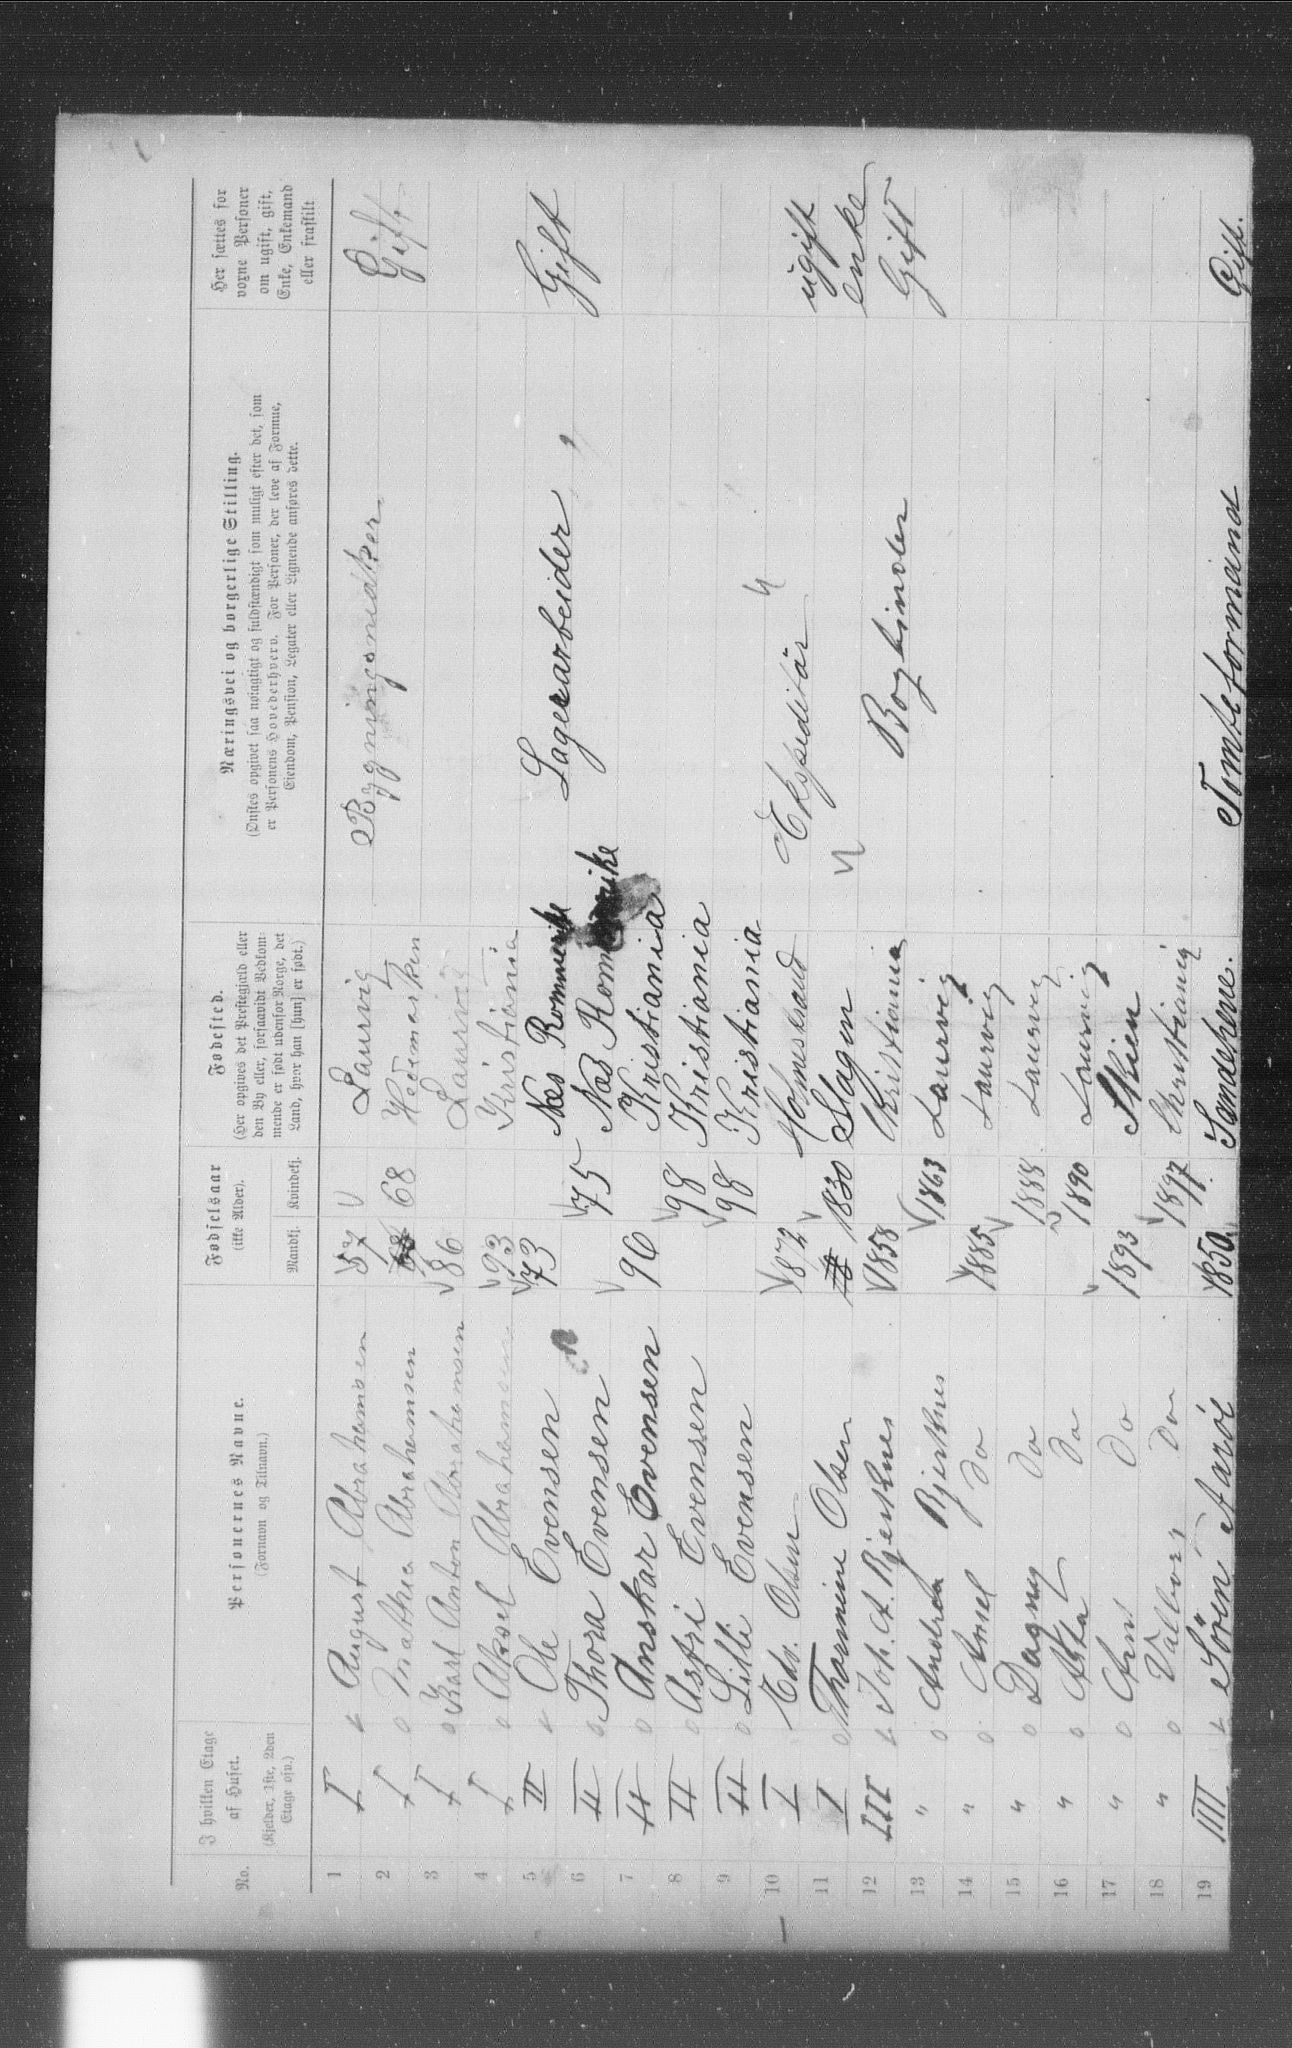 No.
I hvilken Etage
af Huset.
(Kjelder, 1ste, 2den
Etage osv.)
Personernes Navne.
(Fornavn og Tilnavn.)
Fødselsaar
(ikke Alder).
Mandkj. Kvindekj.
Fødested.
(Her opgives det Præstegjæld eller
den By eller, forsaavidt Vedkom-
mende er født udenfor Norge, det
Land, hvor han [hun] er født.)
Næringsvei og borgerlige Stilling.
(Ønskes opgivet saa nøiagtigt og fuldstændigt som muligt efter det, som
er Personens Hovederhverv. For Personer, der leve af Formue,
Eiendom, Pension, Legater eller Lignende anføres dette.
Her sættes for
voxne Personer
om ugift, gift,
Enke, Enkemand
eller fraskilt
1 I August Abrahamsen 57 Laurvig Bygningssnidker Gift
2 I Mathea Abrahamsen 68 Hedmarken
3 I Karl Anton Abrahamsen 86 Laurvig
4 I Aksel Abrahamsen 93 Kristiania
5 II Ole Evensen 73 Næs Rommerike Lagerarbeider Gift
6 II Thora Evensen 75 Næs Romerike
7 II Anskar Evensen 96 Kristiania
8 II Astri Evensen 98 Kristiania
9 II Lilli Evensen 98 Kristiania
10 I Edv. Olsen 1872 Holmestrand Ekspeditär ugift
11 I Thormine Olsen 1830 Slagen enke
12 III Joh. A. Bjerknes 1858 Kristiania Bogbinder Gift
13 " Andrea Bjerknes 1863 Laurvig
14 " Amsel Do 1885 Laurvig
15 " Dagny Do 1888 Laurvig
16 " Do 1890 Laurvig
17 " Do 1893 Skien
18 " Valborg Do 1897 Christiania
19 IIII Sörin Aaröe 1850 Sandehere. Tomteformand Gift.